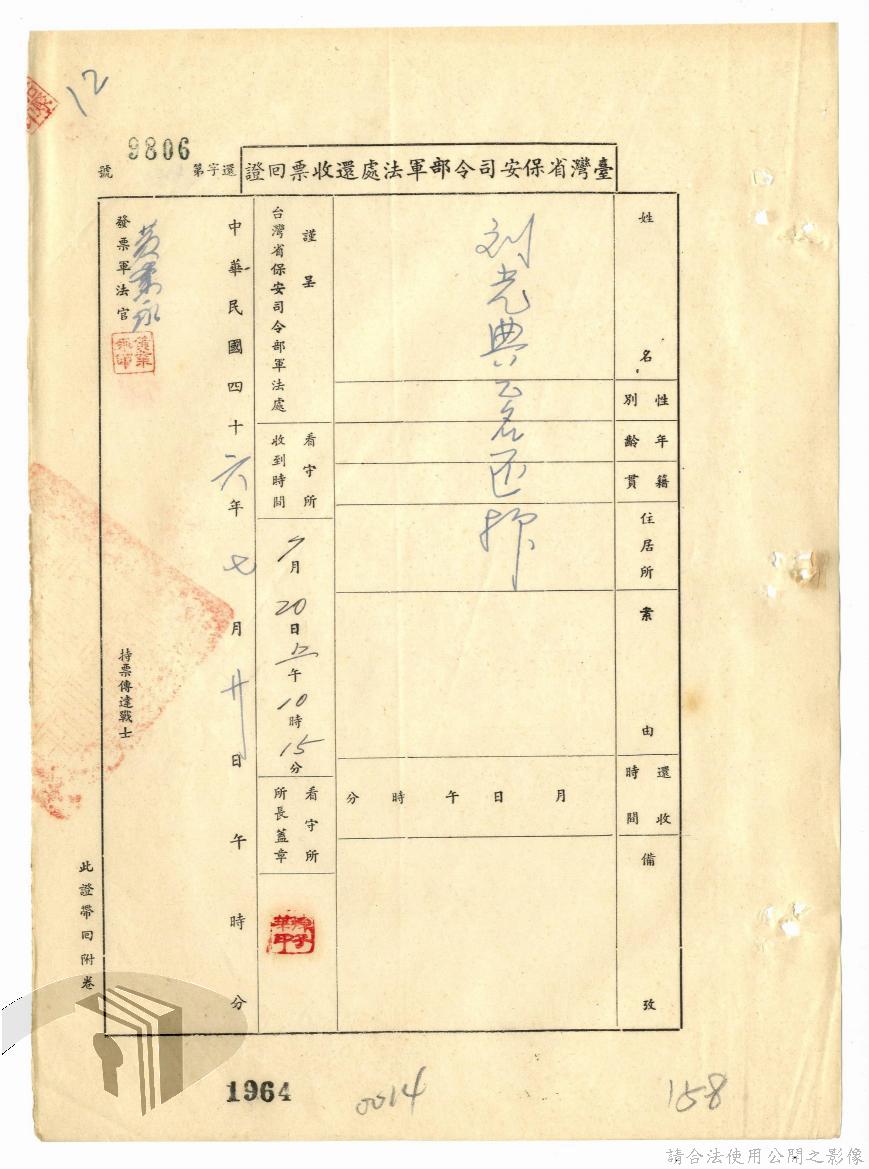 12
9806
號
還字第
臺灣省保安司令部軍法處還收票回證
姓名
刘光典乙名还押
性別
年齡
籍貫
住居所
案由
還收時間
月日午時分
備攷
謹呈
台灣省保安司令部軍法處
看守所收到時間
7月20日上午10時15分
看守所所長蓋章
中華民國四十六年七月廿日午時分
發票軍法官
黃業永
持票傳達戰士
此證帶回附卷
1964
0014
158
請合法使用公開之影像